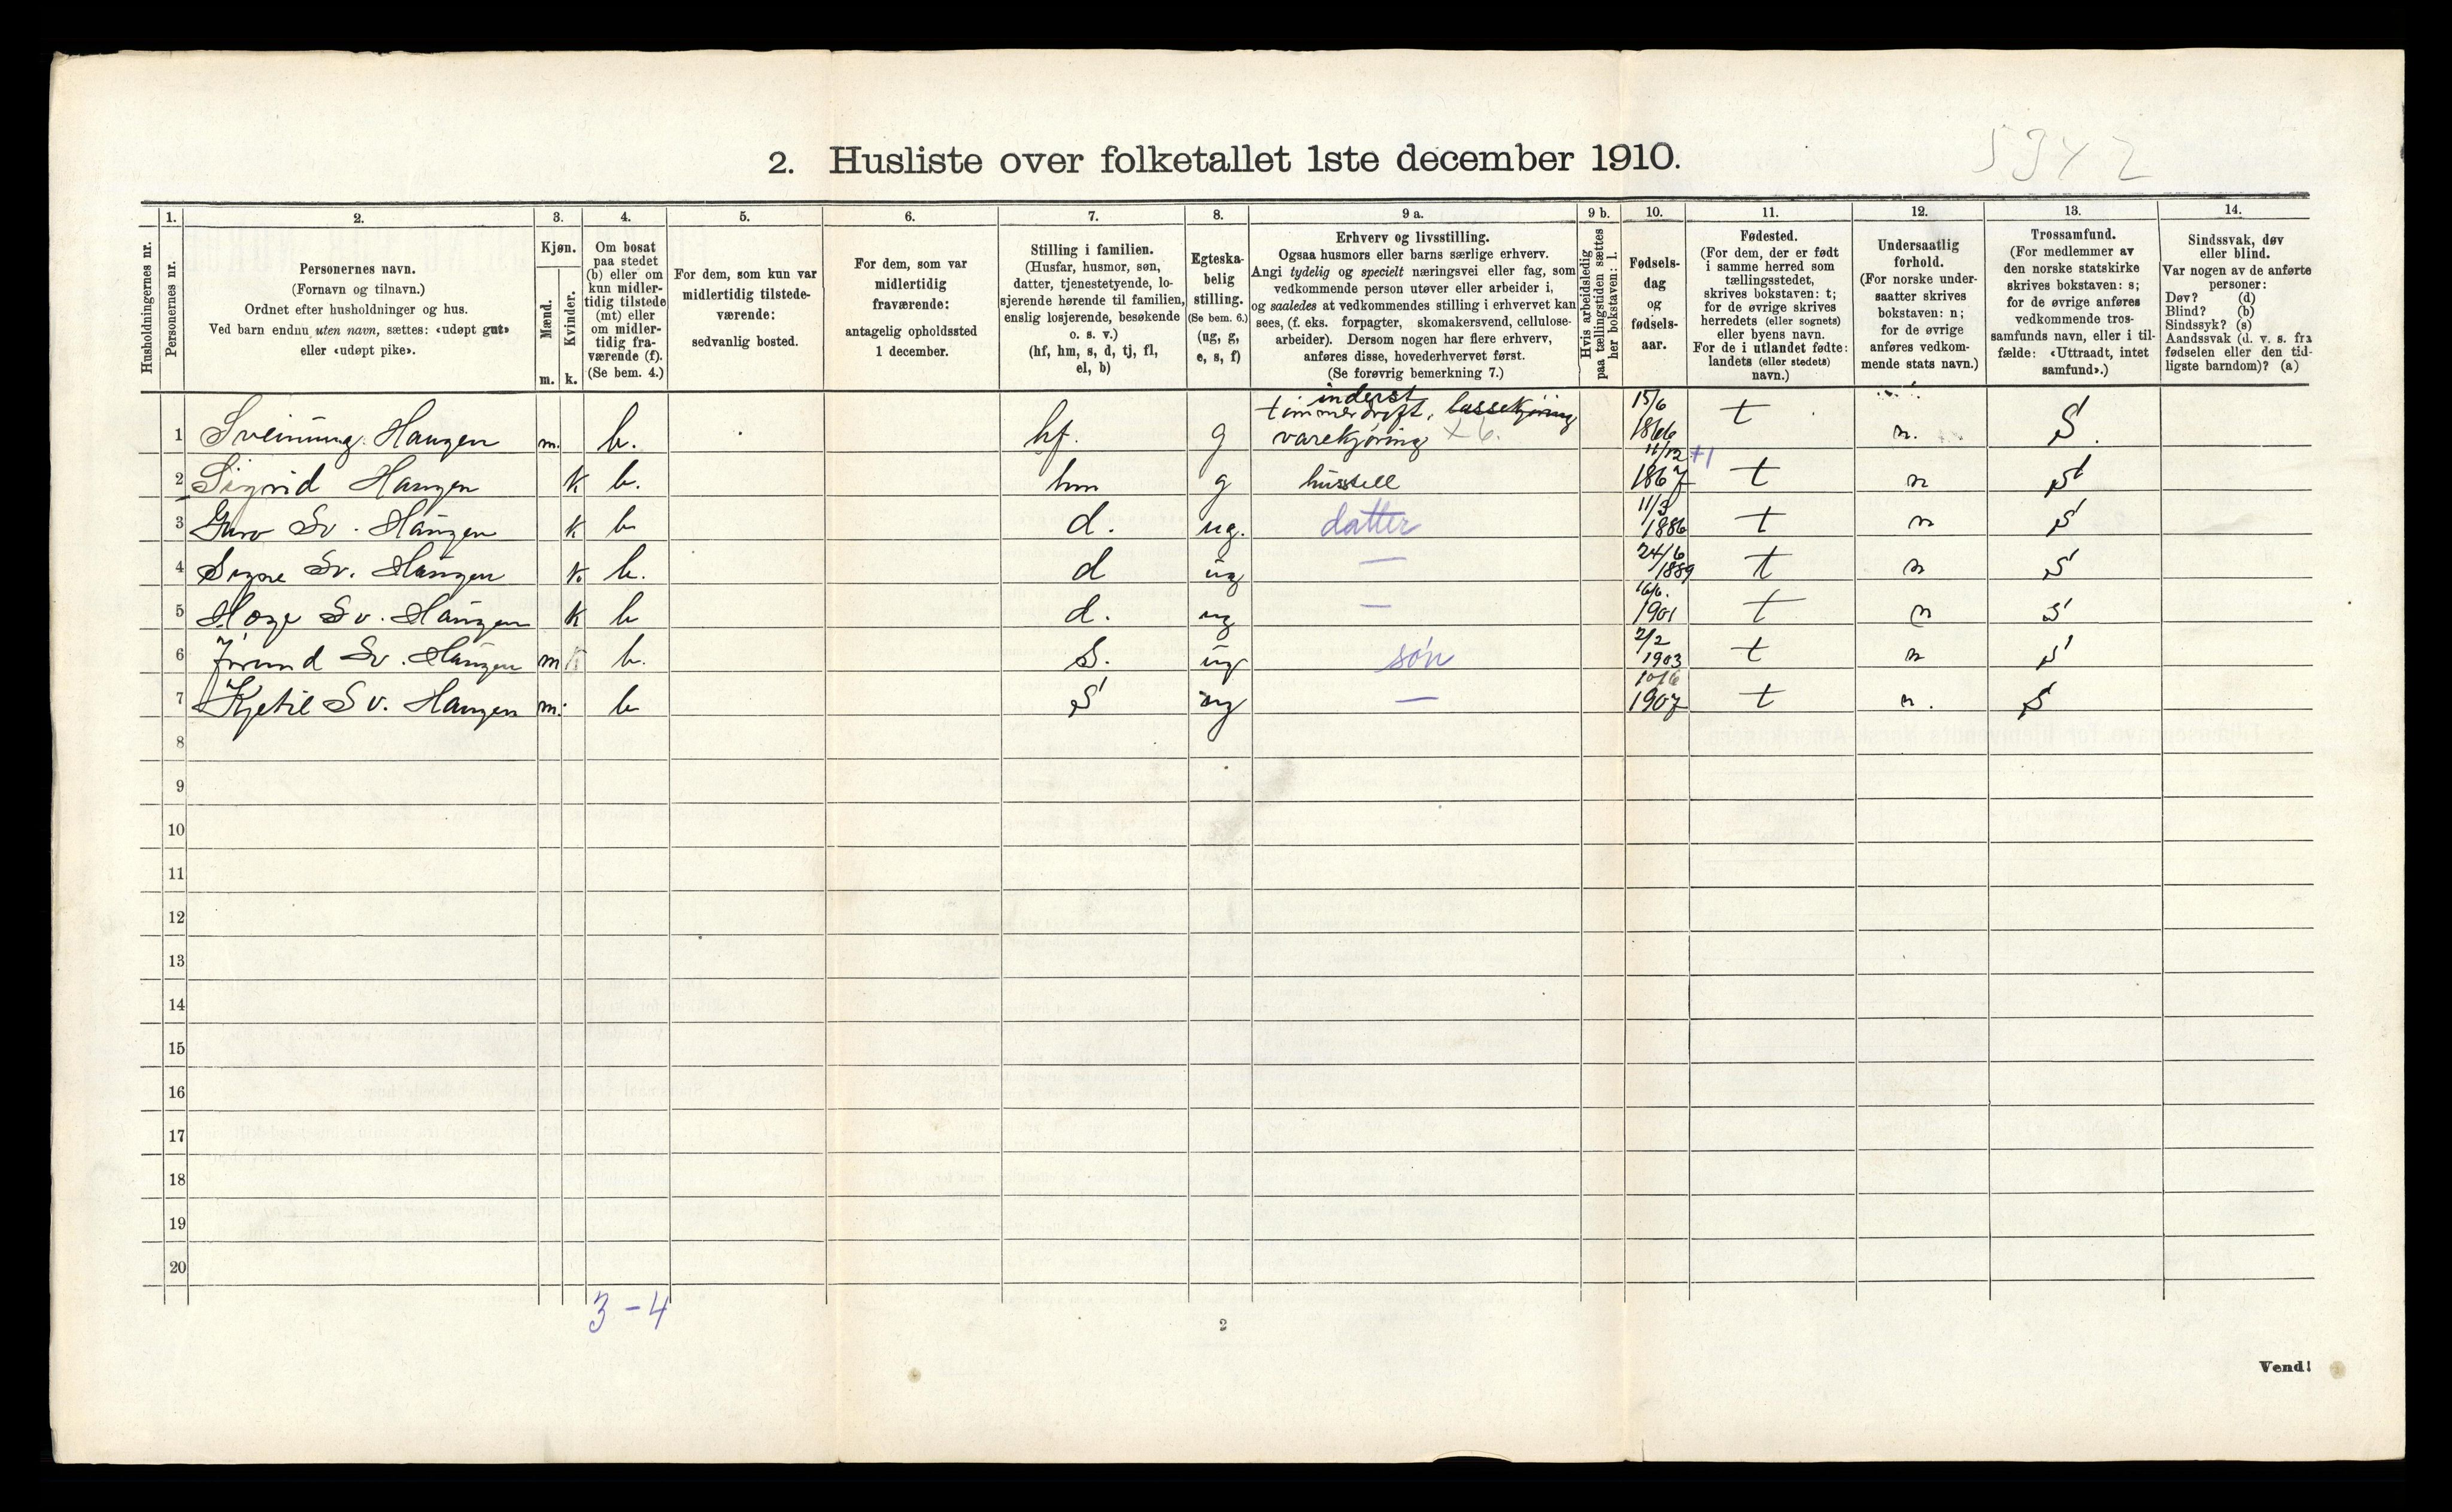 5342
2. Husliste over folketallet 1ste december 1910.
1. 2. 3. 4. 5. 6. 7. 8. 9 a. 9 b. 10. 11. 12. 13. 14.
Husholdningernes nr.
Personernes nr.
Personernes navn.
(Fornavn og tilnavn.)
Ordnet efter husholdninger og hus.
Ved barn endnu uten navn, sættes: «udøpt gut»
eller «udøpt pike».
Kjøn.
Mænd.
Kvinder.
m. k.
Om bosat
paa stedet
(b) eller om
kun midler-
tidig tilstede
(mt) eller
om midler-
tidig fra-
værende (f).
(Se bem. 4.)
For dem, som kun var
midlertidig tilstede-
værende:
sedvanlig bosted.
For dem, som var
midlertidig
fraværende:
antagelig opholdssted
1 december.
Stilling i familien.
(Husfar, husmor, søn,
datter, tjenestetyende, lo-
sjerende hørende til familien,
enslig losjerende, besøkende
o. s. v.)
(hf, hm, s, d, tj, fl,
el, b)
Egteska-
belig
stilling.
(Se bem. 6.)
(ug, g,
e, s, f)
Erhverv og livsstilling.
Ogsaa husmors eller barns særlige erhverv.
Angi tydelig og specielt næringsvei eller fag, som
vedkommende person utøver eller arbeider i,
og saaledes at vedkommendes stilling i erhvervet kan
sees, (f. eks. forpagter, skomakersvend, cellulose-
arbeider). Dersom nogen har flere erhverv,
anføres disse, hovederhvervet først.
(Se forøvrig bemerkning 7.)
Hvis arbeidsledig
paa tællingstiden sættes
her bokstaven: l.
Fødsels-
dag
og
fødsels-
aar.
Fødested.
(For dem, der er født
i samme herred som
tællingsstedet,
skrives bokstaven: t;
for de øvrige skrives
herredets (eller sognets)
eller byens navn.
For de i utlandet fødte:
landets (eller stedets)
navn.)
Undersaatlig
forhold.
(For norske under-
saatter skrives
bokstaven: n;
for de øvrige
anføres vedkom-
mende stats navn.)
Trossamfund.
(For medlemmer av
den norske statskirke
skrives bokstaven: s;
for de øvrige anføres
vedkommende tros-
samfunds navn, eller i til-
fælde: «Uttraadt, intet
samfund».)
Sindssvak, døv
eller blind.
Var nogen av de anførte
personer:
Døv? (d)
Blind? (b)
Sindssyk? (s)
Aandssvak (d. v. s. fra
fødselen eller den tid-
ligste barndom)? (a)
inderst
timmerdrift, lassekjøring 15/6
1 Sveinung Haugen m. b. hf. g varekjøring 1866 t n. S.
11/12 +1
2 Sigrid Haugen k b. hm g husstell 1867 t n S
11/3
3 Guro Sv. Haugen k b d. ug. datter 1886 t n S
24/6
4 Signe Sv. Haugen k. b. d ug — 1889 t n S
16/6.
5 Hoge Sv. Haugen k b d. ug — 1901 t n S
2/2
6 Jorund Sv. Haugen m k b. S. ug søn 1903 t n S
10/6
7 Kjetil Sv. Haugen m. b S ug — 1907 t n. S
8
9
10
11
12
13
14
15
16
17
18
19
20
3 - 4
2
Vend!